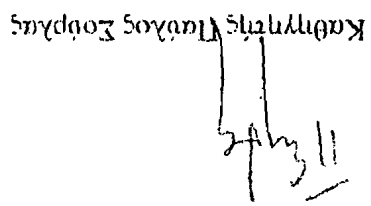 Καθηγητής Παύλος Σούρλας